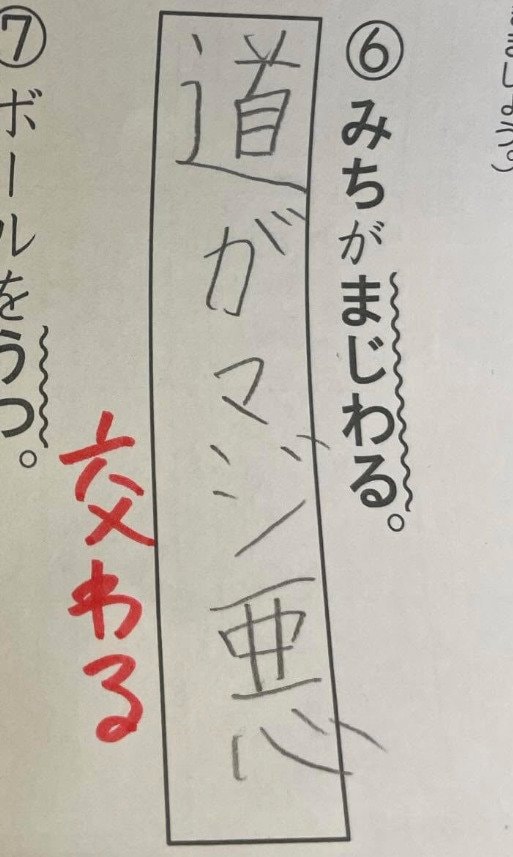 ⑥みちがまじわる。
道がマジ悪
交わる
⑦ボールをうつ。